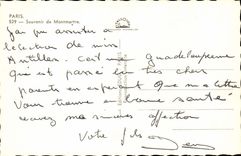 PARIS.
829 - Souvenir de Montmartre.
J'ai pu assister à
l'élection de miss
Antilles. C'est une guadeloupéenne
qui est passée
parents en espérant que ma lettre
Vous trouve en bonne santé
recevez ma sincère affection
Votre fils